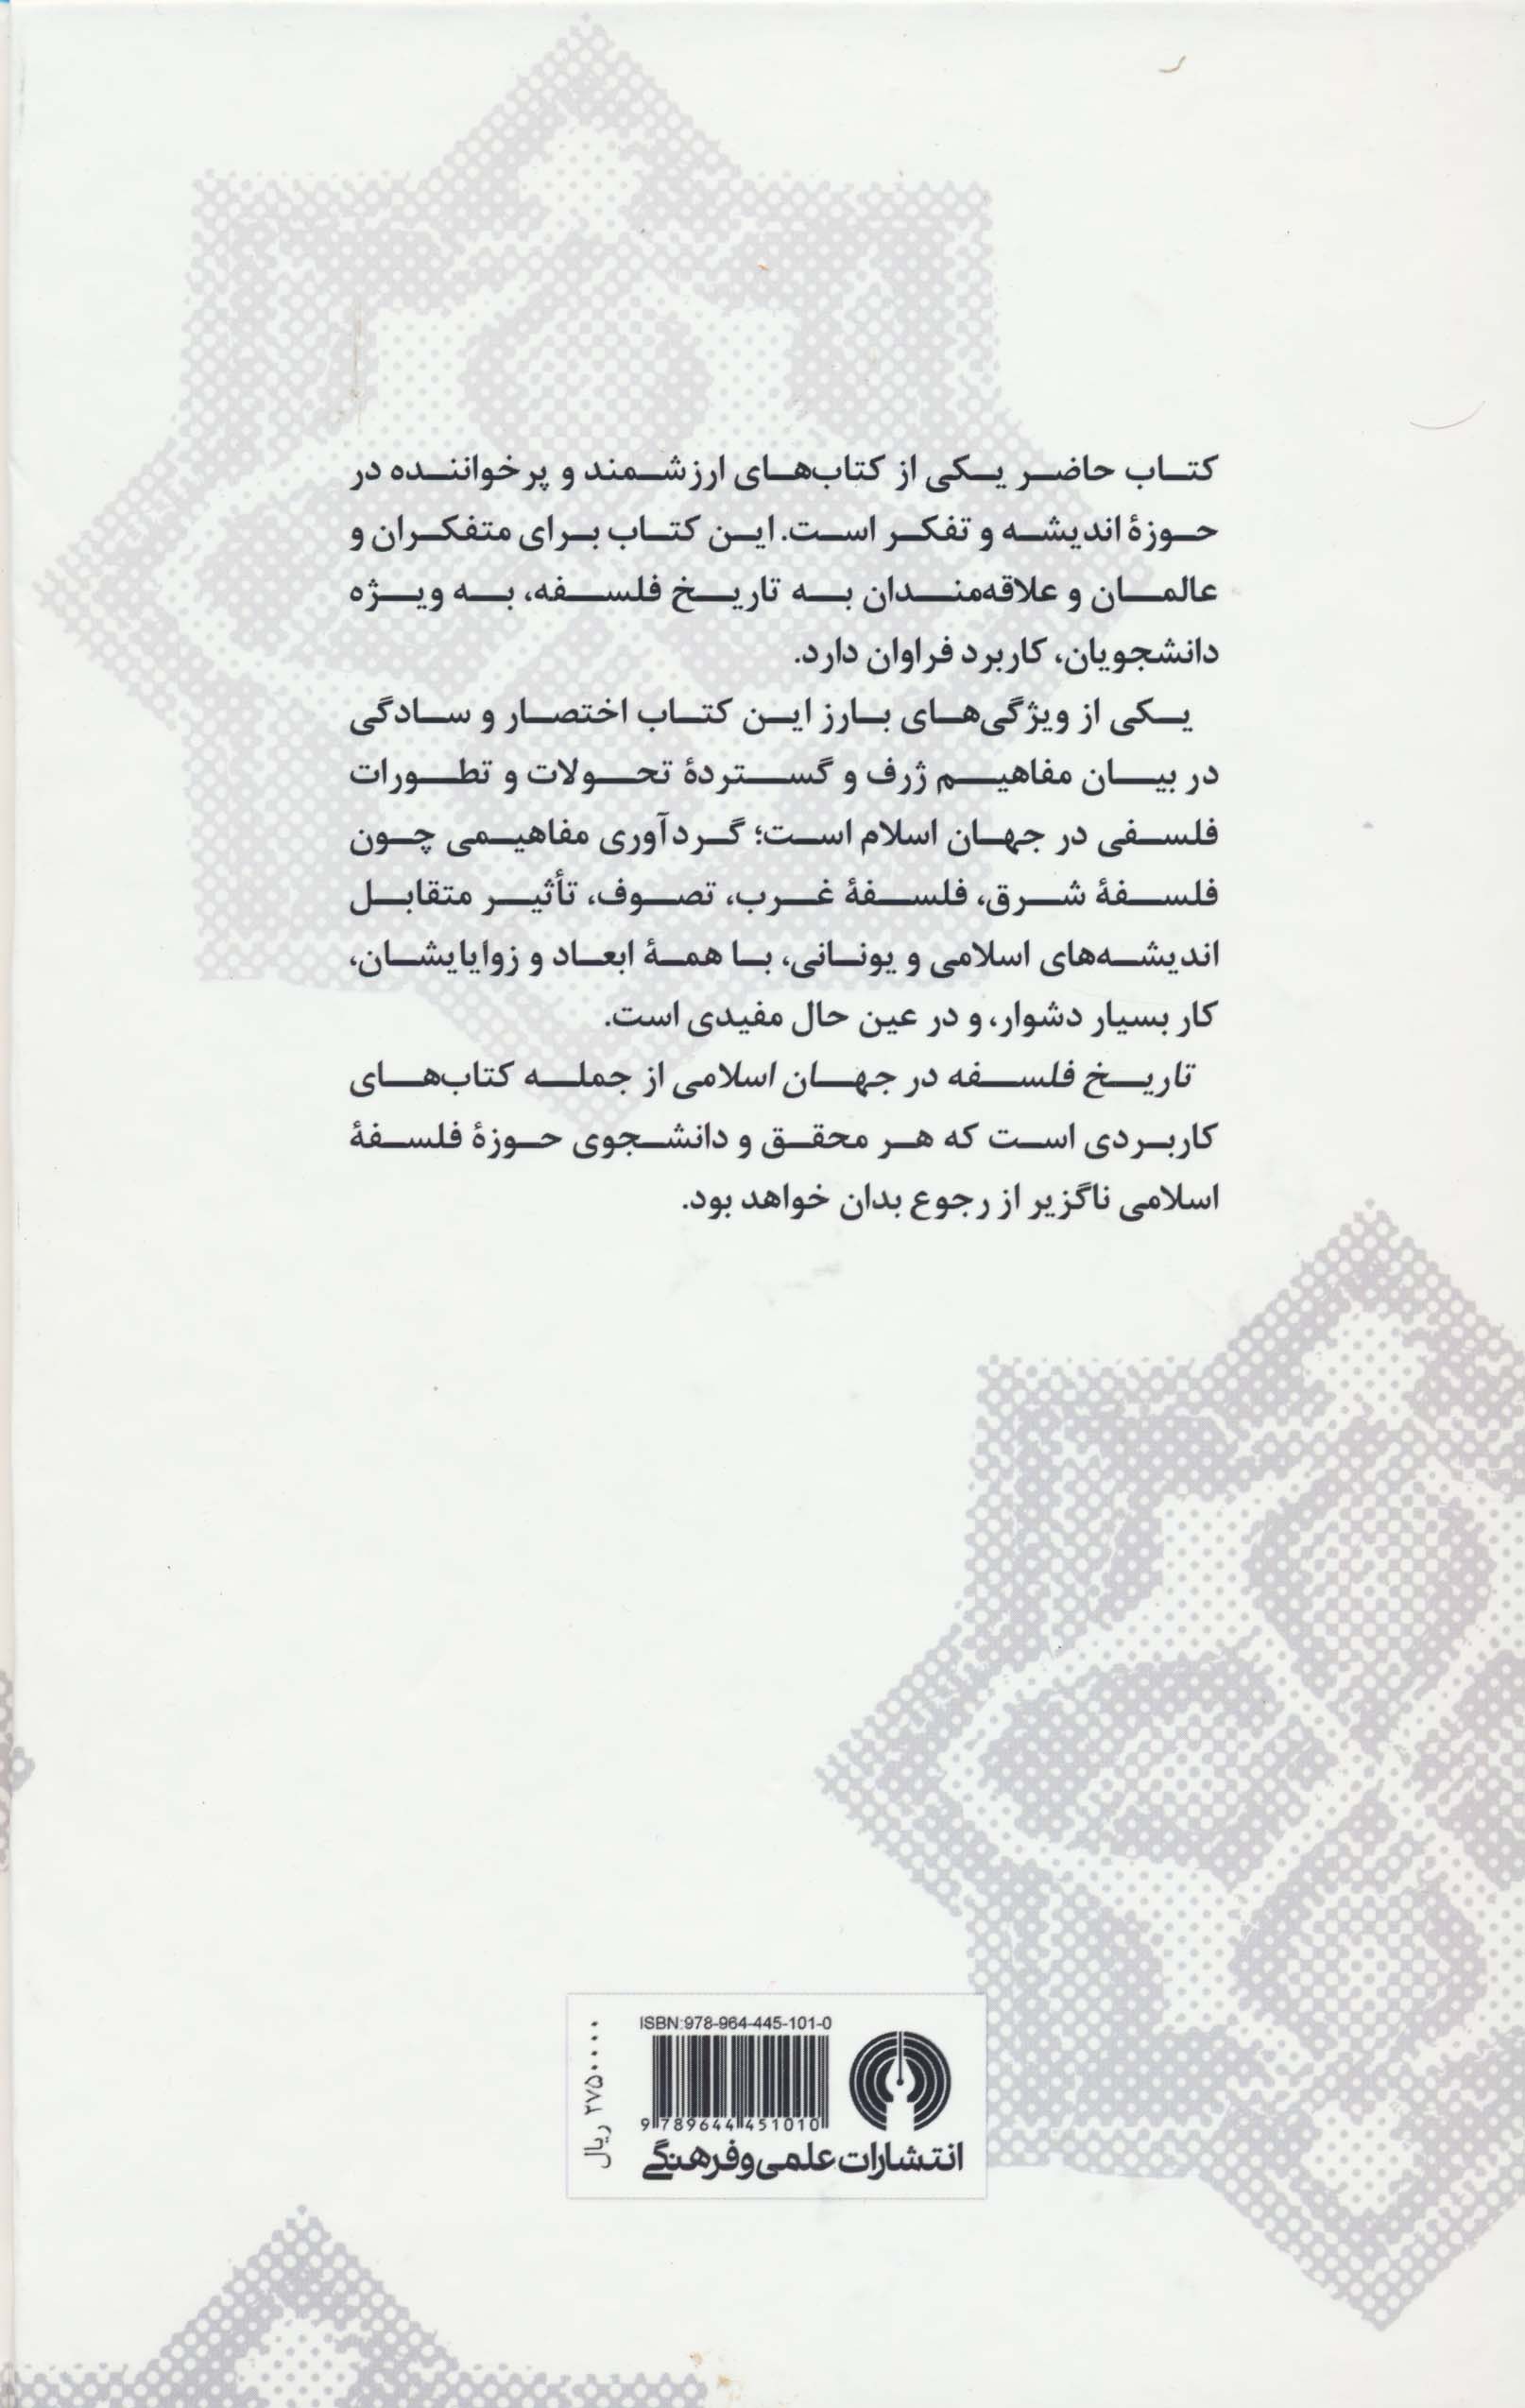 کتاب حاضر یکی از کتاب‌های ارزشمند و پرخواننده در
حوزهٔ اندیشه و تفکر است. این کتاب برای متفکران و
عالمان و علاقه‌مندان به تاریخ فلسفه، به ویژه
دانشجویان، کاربرد فراوان دارد.
یکی از ویژگی‌های بارز این کتاب اختصار و سادگی
در بیان مفاهیم ژرف و گستردهٔ تحولات و تطورات
فلسفی در جهان اسلام است؛ گردآوری مفاهیمی چون
فلسفهٔ شرق، فلسفهٔ غرب، تصوف، تأثیر متقابل
اندیشه‌های اسلامی و یونانی، با همهٔ ابعاد و زوایایشان،
کار بسیار دشوار، و در عین حال مفیدی است.
تاریخ فلسفه در جهان اسلامی از جمله کتاب‌های
کاربردی است که هر محقق و دانشجوی حوزهٔ فلسفهٔ
اسلامی ناگزیر از رجوع بدان خواهد بود.
ISBN:978-964-445-101-0
9 789644 451010
انتشارات علمی و فرهنگی
۲۷۵۰۰۰۰ ریال